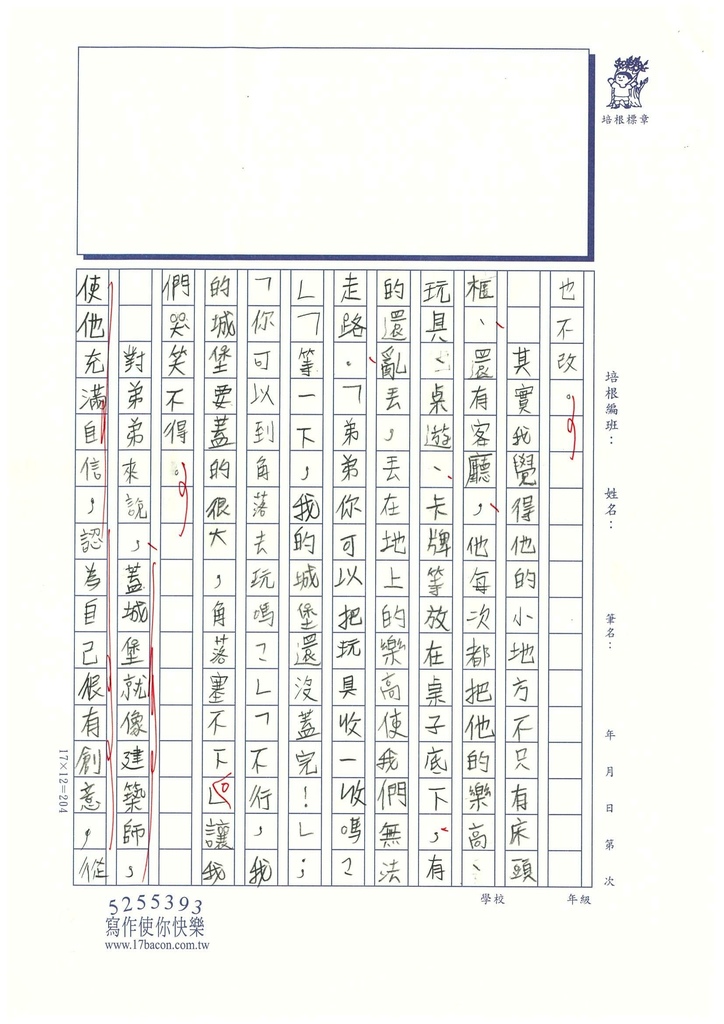 培根標章
培根編班：
姓名：
筆名：
年 月 日 第 次
也不改。
其實我覺得他的小地方不只有床頭
櫃、還有客廳，他每次都把他的樂高、
玩具、桌遊、卡牌等放在桌子底下，有
的還亂丟，丟在地上的樂高使我們無法
走路。「弟弟你可以把玩具收一收嗎？
」「等一下，我的城堡還沒蓋完！」；
「你可以到角落去玩嗎？」「不行，我
的城堡要蓋的很大，角落塞不下」讓我
們哭笑不得。
對弟弟來說，蓋城堡就像建築師，
使他充滿自信，認為自己很有創意，從
17×12=204
年級
學校
5255393
寫作使你快樂
www.17bacon.com.tw